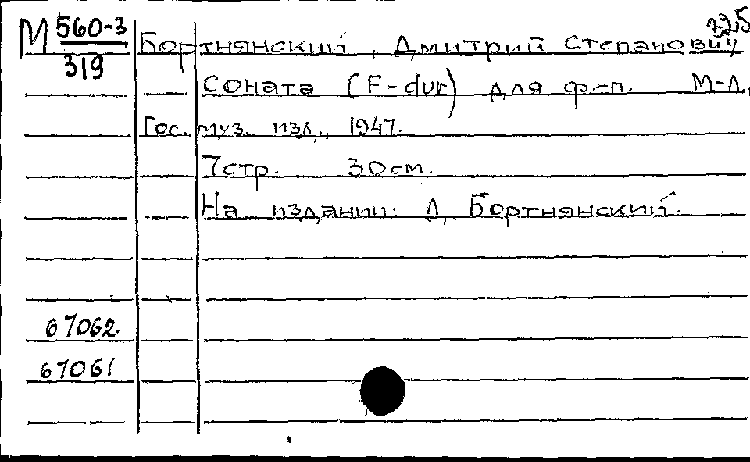 М 560-3
319
Бортнянский, Дмитрий Степанович
Соната (F-dur) для ф.-п. М-Л,
Гос. муз. изд., 1947.
7 стр. 30 см.
На издании: Д. Бортнянский.
67062.
67061